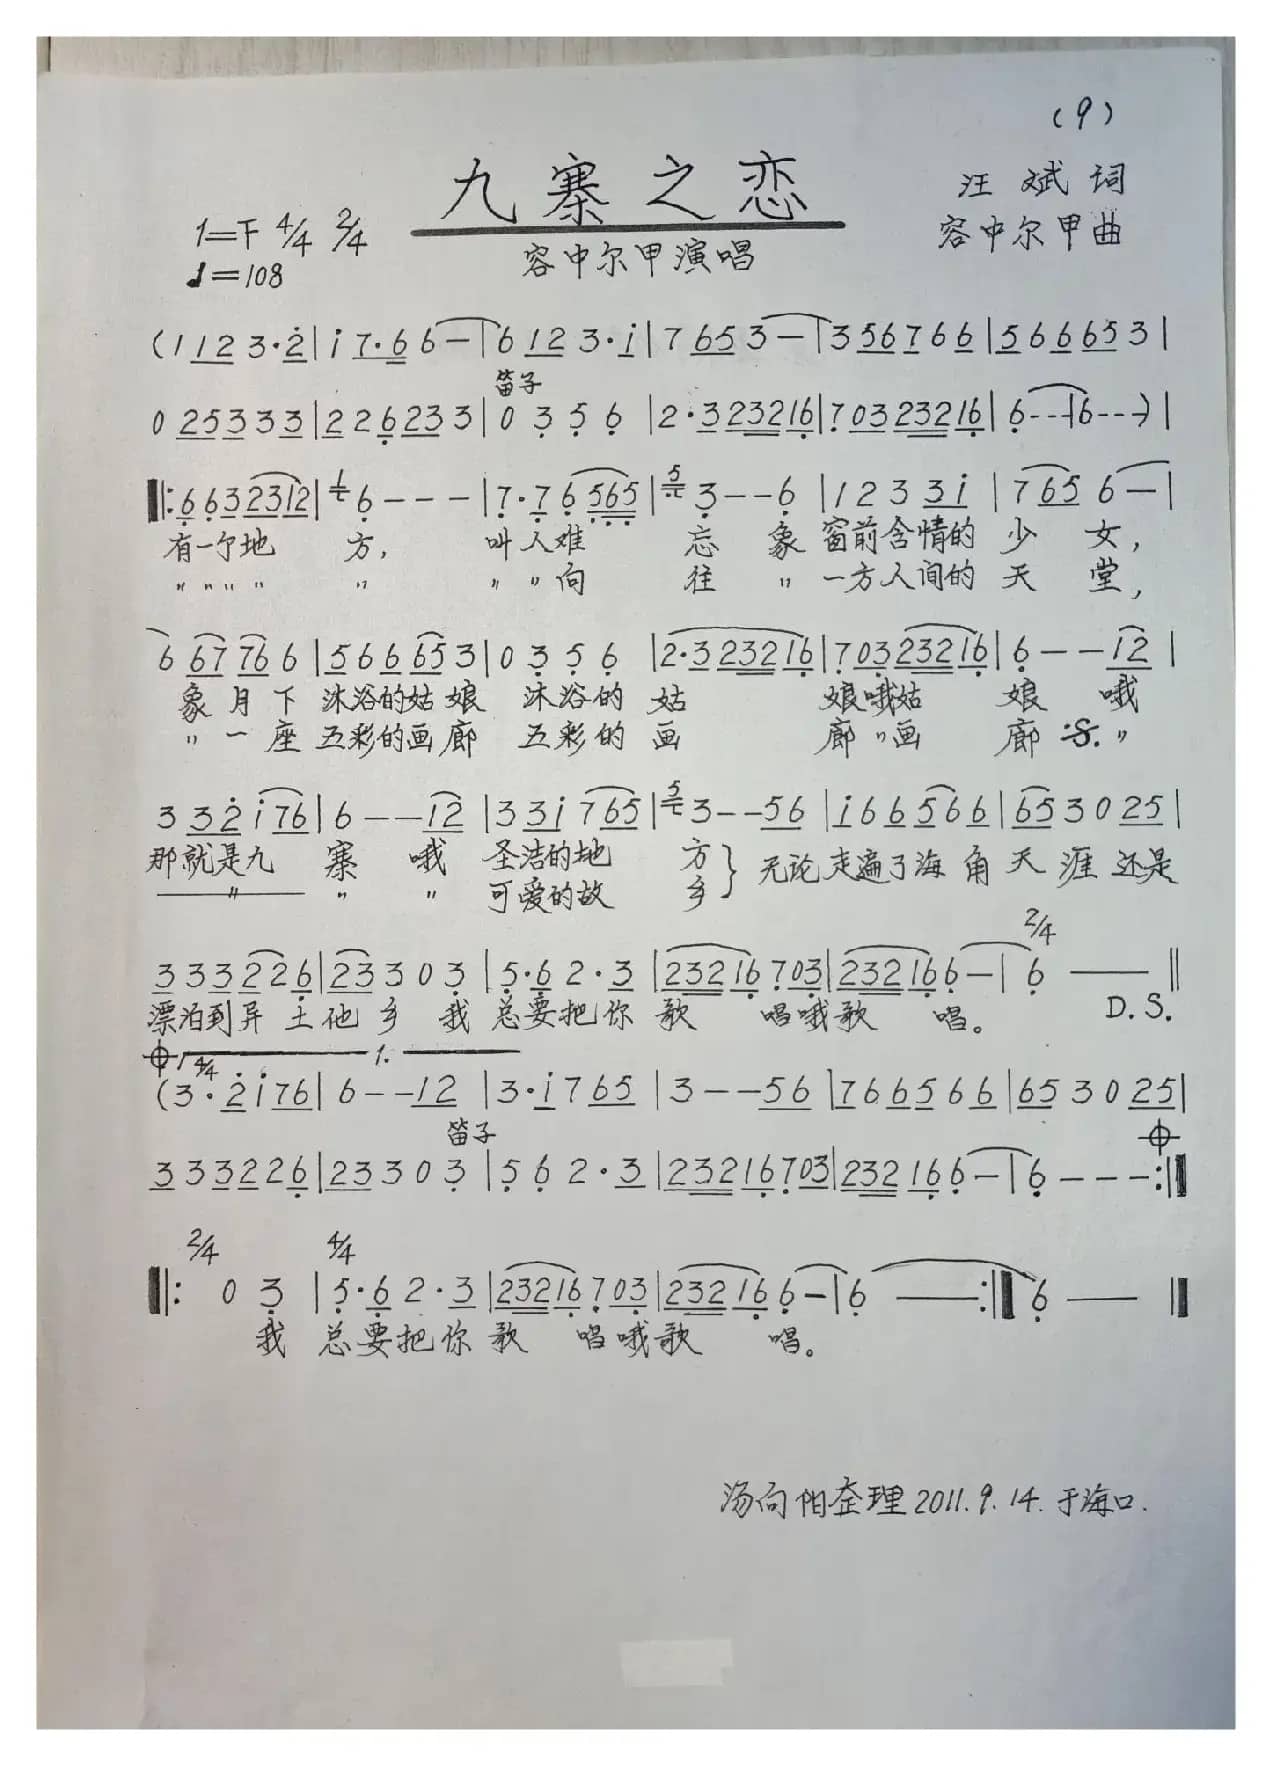 (9)
九寨之恋
汪斌词
1=F 4/4 2/4
容中尔甲曲
容中尔甲演唱
♩=108
(1 1 1 2 3·2|i 7·6 6—|6 1 2 3·i|7 6 5 3—|3 5 6 7 6 6|5 6 6 6 5 3|
笛子
0 2 5 3 3 3|2 2 6 2 3 3|0 3 5 6|2·3 2 3 2 1 6|7 0 3 2 3 2 1 6|6---|6---)|
‖:6 6 3 2 3 1 2|1 6---|7·7 6 5 6 5|5 3--6|1 2 3 3 i|7 6 5 6—|
有一个地 方, 叫人难 忘 象 窗前含情的 少 女,
〃〃〃〃 〃 〃〃向 往 〃 一方人间的 天 堂,
6 6 7 7 6 6|5 6 6 6 5 3|0 3 5 6|2·3 2 3 2 1 6|7 0 3 2 3 2 1 6|6--1 2|
象月下 沐浴的姑娘 沐浴的 姑 娘哦姑 娘 哦
〃一座 五彩的画廊 五彩的 画 廊〃画 廊 :S. 〃
3 3 2 i 7 6|6--1 2|3 3 i 7 6 5|5 3--5 6|i 6 6 5 6 6|6 5 3 0 2 5|
那就是九 寨 哦 圣洁的地 方 } 无论走遍了海角天涯还是
〃 〃 〃 可爱的故 乡
2/4
3 3 3 2 2 6|2 3 3 0 3|5·6 2·3|2 3 2 1 6 7 0 3|2 3 2 1 6 6—|6 —‖
漂泊到异土他乡 我 总要把你 歌 唱哦歌 唱。 D.S.
1.
4/4
(3·2 i 7 6|6--1 2|3·i 7 6 5|3--5 6|7 6 6 5 6 6|6 5 3 0 2 5|
笛子
3 3 3 2 2 6|2 3 3 0 3|5 6 2·3|2 3 2 1 6 7 0 3|2 3 2 1 6 6—|6---:‖
2/4 4/4
‖: 0 3|5·6 2·3|2 3 2 1 6 7 0 3|2 3 2 1 6 6—|6 —:‖6 —‖
我 总要把你 歌 唱哦歌 唱。
汤向阳整理2011.9.14.于海口.